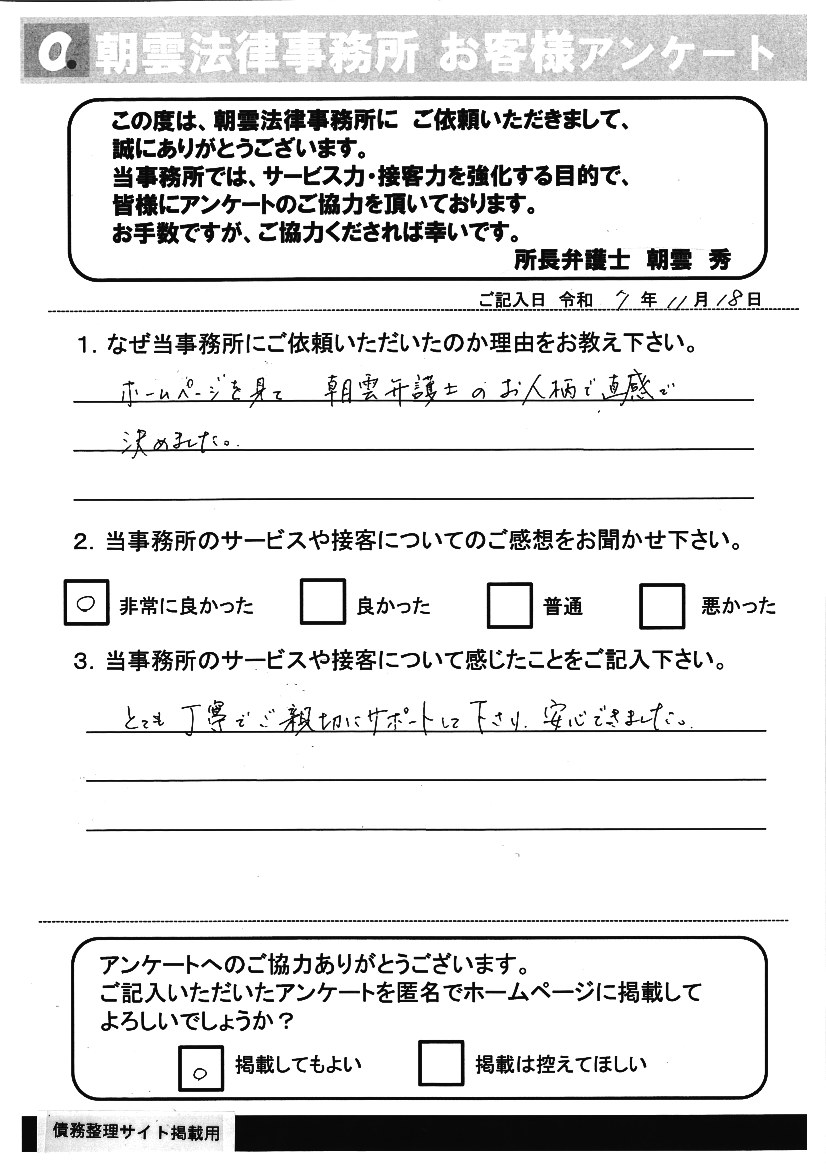 a. 朝雲法律事務所 お客様アンケート
この度は、朝雲法律事務所に ご依頼いただきまして、
誠にありがとうございます。
当事務所では、サービス力・接客力を強化する目的で、
皆様にアンケートのご協力を頂いております。
お手数ですが、ご協力くだされば幸いです。
所長弁護士 朝雲 秀
ご記入日 令和 7 年 11 月 18 日
1. なぜ当事務所にご依頼いただいたのか理由をお教え下さい。
ホームページを見て 朝雲弁護士のお人柄で直感で
決めました。
2. 当事務所のサービスや接客についてのご感想をお聞かせ下さい。
○ 非常に良かった 良かった 普通 悪かった
3. 当事務所のサービスや接客について感じたことをご記入下さい。
とても丁寧でご親切にサポートして下さり、安心できました。
アンケートへのご協力ありがとうございます。
ご記入いただいたアンケートを匿名でホームページに掲載して
よろしいでしょうか？
○ 掲載してもよい 掲載は控えてほしい
債務整理サイト掲載用